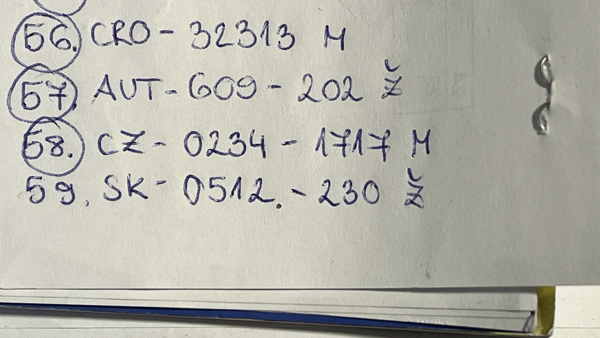 56. CRO - 32313 M
57. AUT - 609 - 202 Ž
58. CZ - 0234 - 1717 M
59. SK - 0512. - 230 Ž